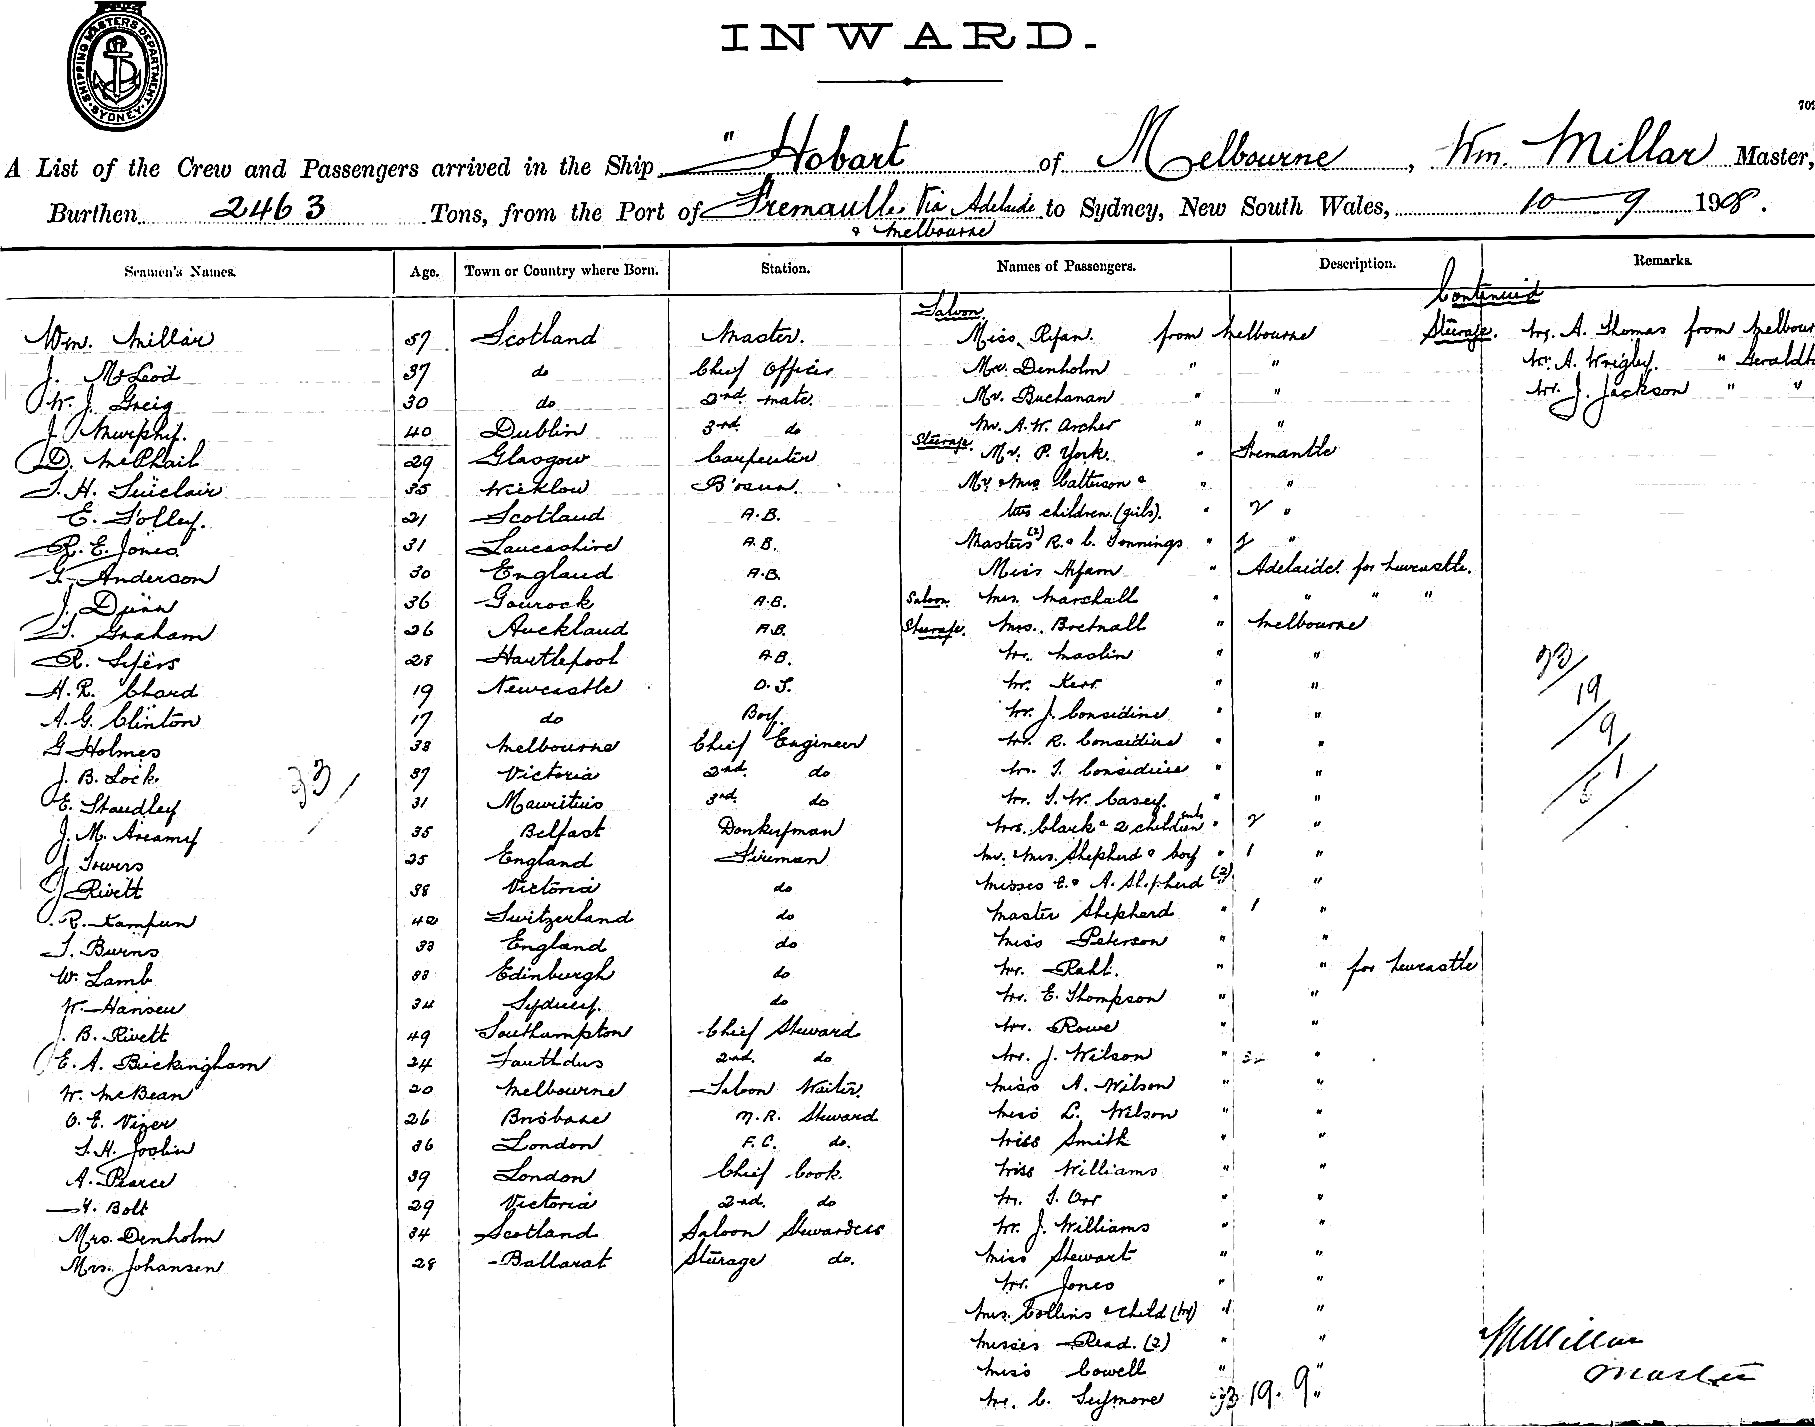 SHIPPING MASTERS DEPARTMENT SYDNEY
INWARD.
A List of the Crew and Passengers arrived in the Ship "Hobart of Melbourne, Wm. Millar Master,
Burthen 2463 Tons, from the Port of Via Adelaide to Sydney, New South Wales, 10 - 9 1908.
& Melbourne
Seamen's Names. Age. Town or Country where Born. Station. Names of Passengers. Description. Remarks.
Saloon Continued
Wm. Millar 57 Scotland Master. Miss Ryan. from Melbourne Steerage. Mr. A. Thomas from Melbour
J. McLeod 37 do Chief Officer Mrs. Denholm " " Mr. A. Wrigley. " Geraldt
W. J. Greig 30 do 2nd. Mate. Mr. Buchanan " " Mr. J. Jackson " "
J. Murphy. 40 Dublin 3rd. do Mr. A. W. Archer " "
D. McPhail 29 Glasgow Carpenter Steerage. Mr. P. York. " Fremantle
T. H. Sinclair 35 Wicklow B'osun. Mr & Mrs Catterson & " "
E. Jolley. 21 Scotland A.B. two children (girls). " 2 "
R. E. Jones 31 Lancashire A.B. Masters (2) R. & C. Jennings " 2 "
G. Anderson 30 England A.B. Miss " Adelaide. for Newcastle.
J. Dunn 36 Gourock A.B. Saloon. Mrs. Marshall " " " "
T. Graham 26 Auckland A.B. Steerage. Mrs. Bretnall " Melbourne
R. Syers 28 Hartlepool A.B. Mr. Maslin " "
H. R. Chard 19 Newcastle O.S. Mr. Kerr " "
A. G. Clinton 17 do Boy. Mr. J. Considine " "
G Holmes 38 Melbourne Chief Engineer Mr. R. Considine " "
J. B. Lock. 37 Victoria 2nd. do Mr. T. Considine " "
E. Standley 31 Mauritius 3rd. do Mr. T. W. Casey. " "
J. M. Areamy 35 Belfast Donkeyman Mrs. Clark & 2 children " 2 "
J Towers 25 England Fireman Mr. Mrs. Shepherd & boy " 1 "
J Rivett 38 Victoria do Misses E. & A. Shepherd (2) "
R. Kampun 42 Switzerland do Master Shepherd " 1 "
T. Burns 33 England do Miss Peterson " "
W. Lamb 33 Edinburgh do Mr. Rahl. " " for Newcastle
W. Hansen 34 Sydney. do Mr. E. Thompson " "
J. B. Rivett 49 Southampton Chief Steward Mr. Rowe " "
E. A. Buckingham 24 2nd. do Mr. J. Wilson " 32 "
W. McBean 20 Melbourne Saloon Waiter. Miss A. Wilson " "
O. E. Vizer 26 Brisbane M.R. Steward Miss L. Wilson " "
T. H. Joslin 36 London F.C. do. Miss Smith " "
A. Pearce 39 London Chief Cook. Miss Williams " "
H. Bolt 29 Victoria 2nd. do Mr. T. Orr " "
Mrs. Denholm 34 Scotland Saloon Stewardess Mr. J. Williams " "
Mrs. Johansen 28 Ballarat Steerage do. Miss Stewart " "
Mr. Jones " "
Mrs. Collins & child " "
Misses Read. (2) " "
Miss Cowell " "
Mr. C. Seymore 33 19. 9. "
33/
33/
19
/9
/1
5/
WMillar
Master